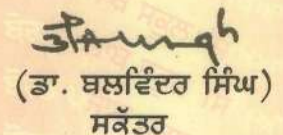 (ਡਾ. ਬਲਵਿੰਦਰ ਸਿੰਘ)
ਸਕੱਤਰ